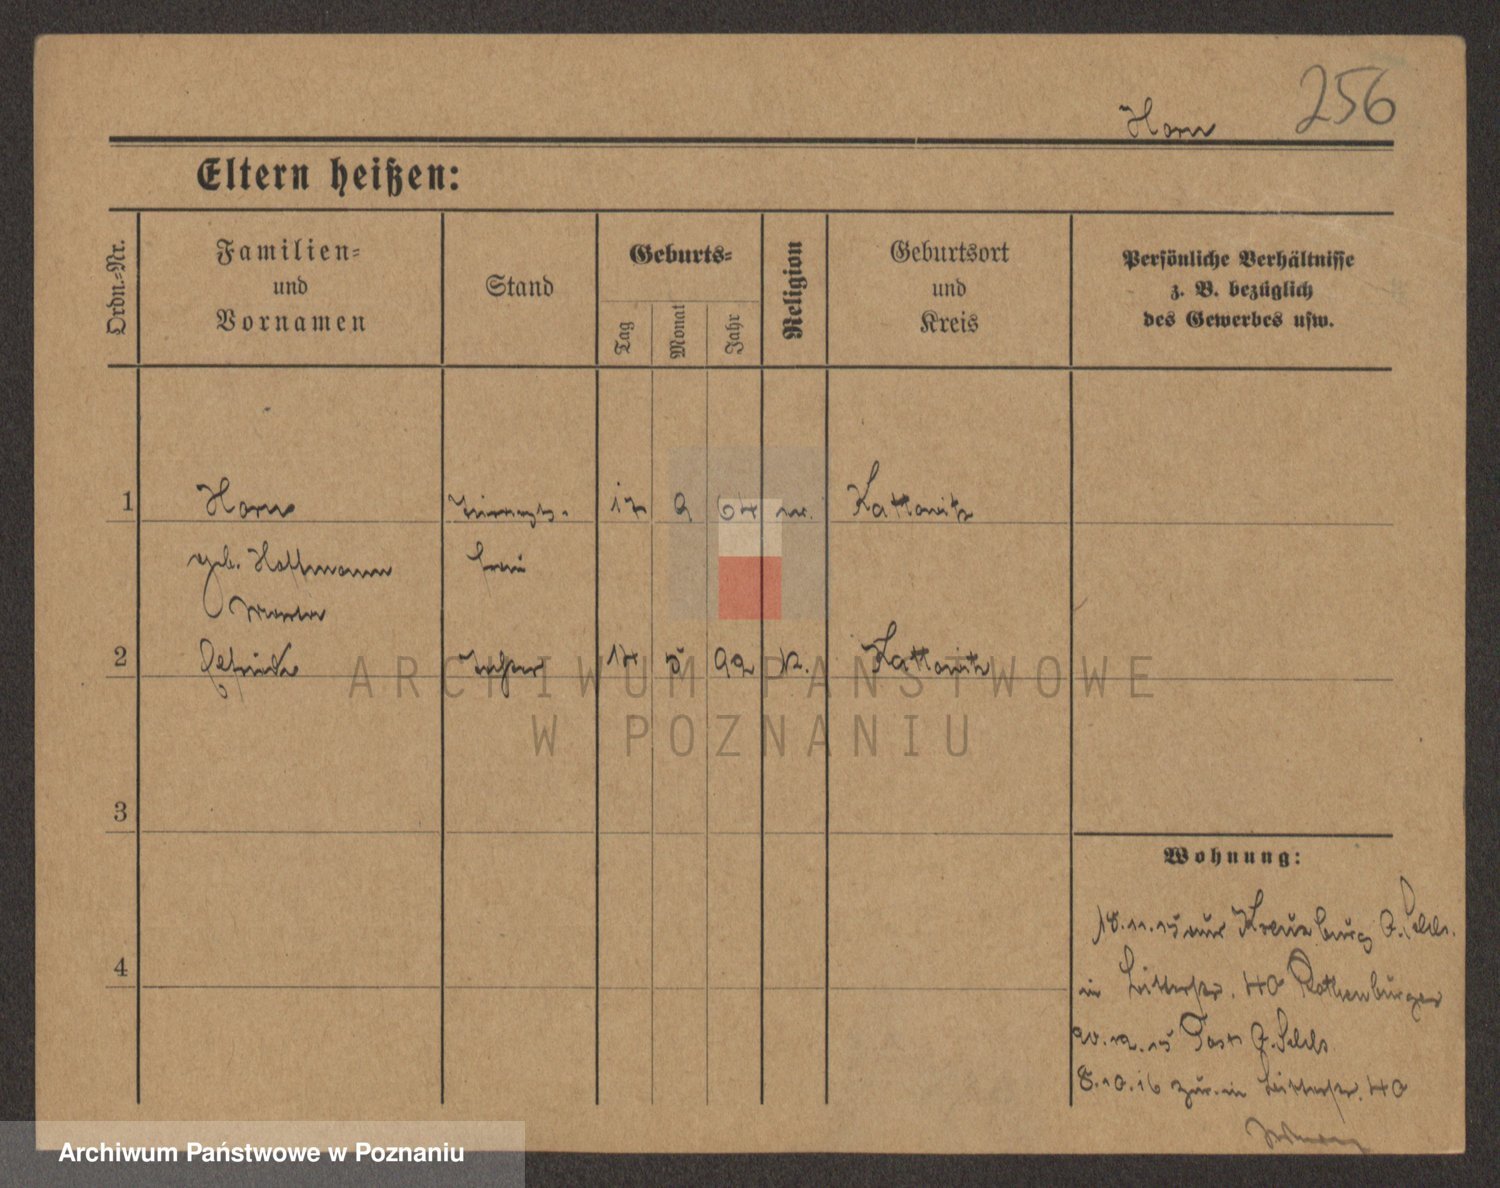 256
Horn
Eltern heißen:
Ordn.-Nr.
Familien-
und
Vornamen
Stand
Geburts-
Tag
Monat
Jahr
Religion
Geburtsort
und
Kreis
Persönliche Verhältnisse
z. B. bezüglich
des Gewerbes usw.
1
Horn
17
9
64
Kattowitz
geb. Hoffmann
frau
Maria
2
Tochter
14
5
92
k.
Kattowitz
3
4
Wohnung:
18.11.15 aus Kreuzburg O. Schls.
in 40 Rothenburger
20.12.15 Tost O. Schls.
8.10.16 zur. in 40
ARCHIWUM PAŃSTWOWE
W POZNANIU
Archiwum Państwowe w Poznaniu